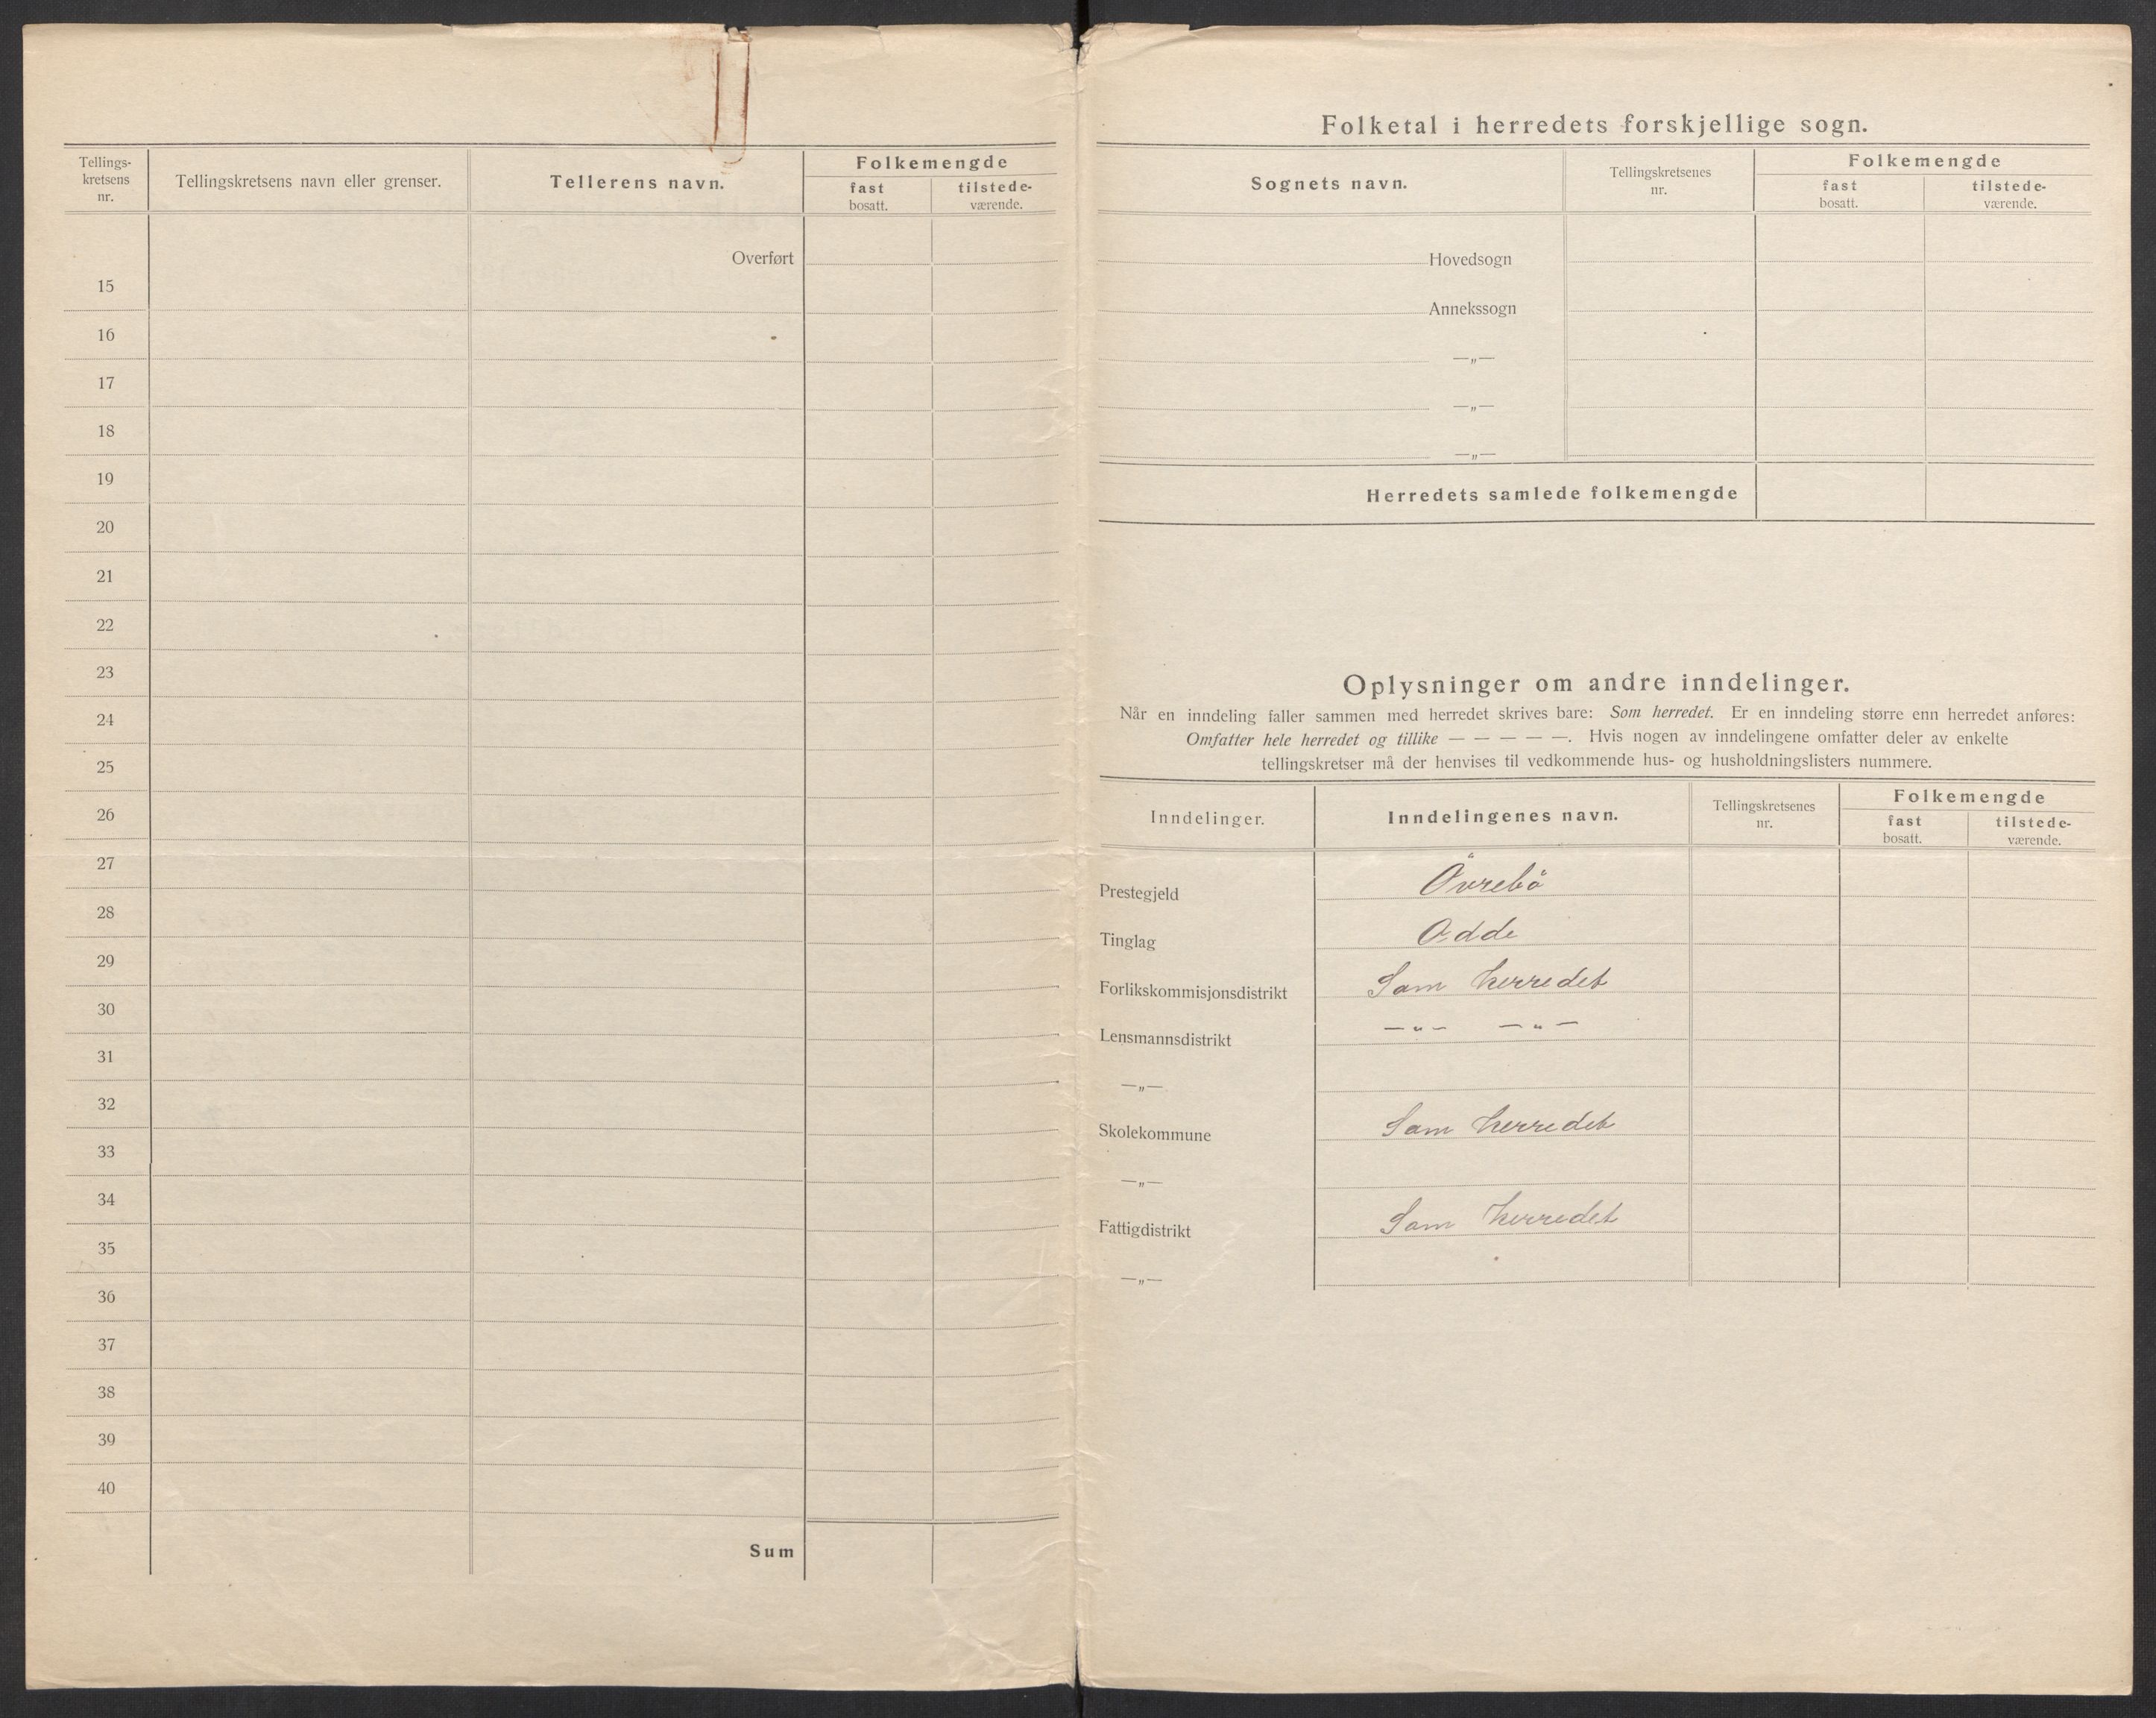 Tellings-
kretsens
nr.
Tellingskretsens navn eller grenser.
Tellerens navn.
Folkemengde
fast
bosatt.
tilstede-
værende.
Overført
15
16
17
18
19
20
21
22
23
24
25
26
27
28
29
30
31
32
33
34
35
36
37
38
39
40
Sum
Folketal i herredets forskjellige sogn.
Sognets navn.
Tellingskretsenes
nr.
Folkemengde
fast
bosatt.
tilstede-
værende.
Hovedsogn
Annekssogn
—„—
—„—
—„—
Herredets samlede folkemengde
Oplysninger om andre inndelinger.
Når en inndeling faller sammen med herredet skrives bare: Som herredet. Er en inndeling større enn herredet anføres:
Omfatter hele herredet og tillike — — — — —. Hvis nogen av inndelingene omfatter deler av enkelte
tellingskretser må der henvises til vedkommende hus- og husholdningslisters nummere.
Inndelinger.
Inndelingenes navn.
Tellingskretsenes
nr.
Folkemengde
fast
bosatt.
tilstede-
værende.
Prestegjeld Övrebö
Tinglag Odde
Forlikskommisjonsdistrikt Som herredet
Lensmannsdistrikt —"— —"—
—„—
Skolekommune Som herredet
—„—
Fattigdistrikt Som herredet
—„—